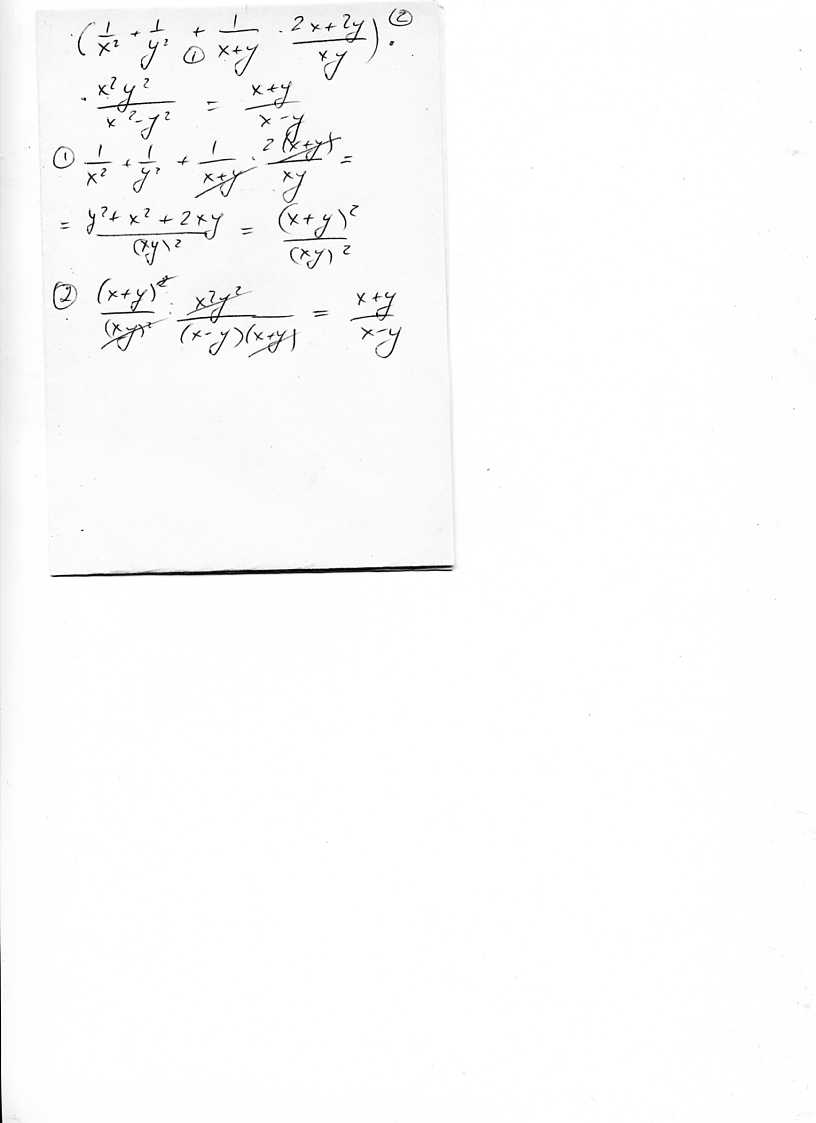 (1/x² + 1/y² + ① 1/(x+y) · (2x+2y)/(xy)) · ②
· x²y²/(x²-y²) = (x+y)/(x-y)
① 1/x² + 1/y² + 1/(x+y) · 2(x+y)/(xy) =
= (y²+x²+2xy)/(xy)² = (x+y)²/(xy)²
② (x+y)²/(xy)² · x²y²/((x-y)(x+y)) = (x+y)/(x-y)